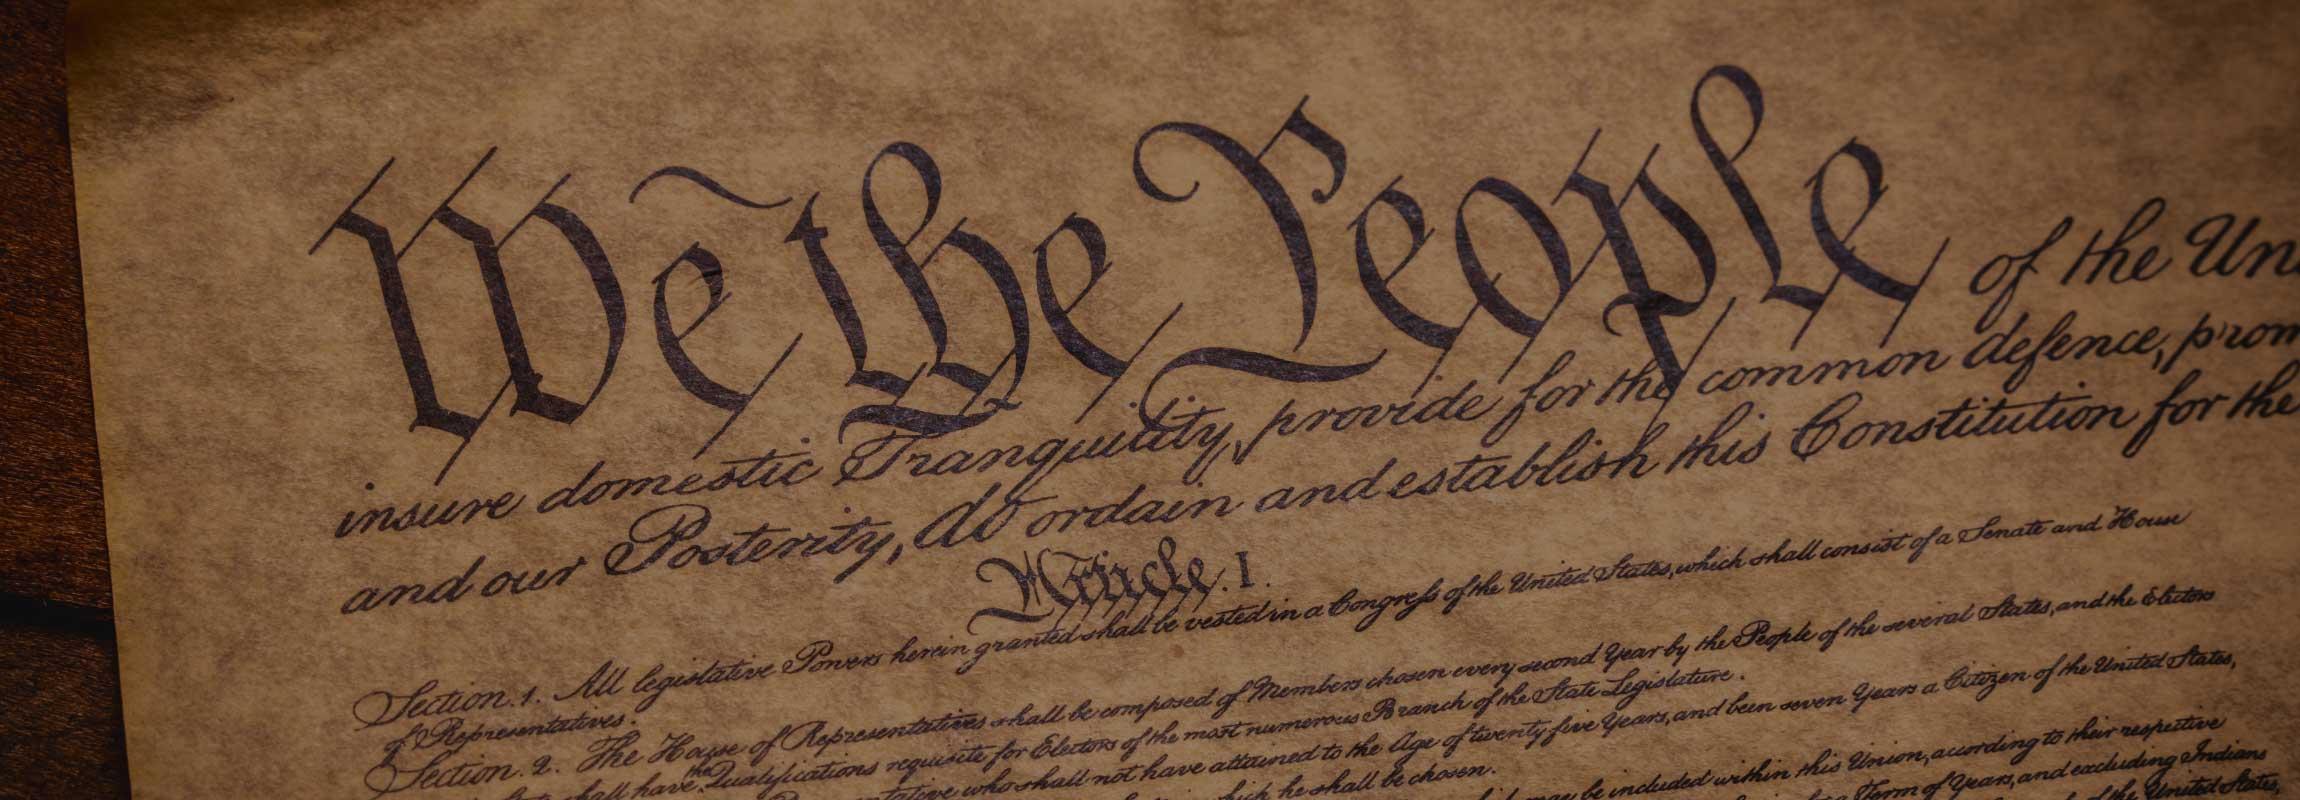 We the People of the Un
insure domestic Tranquility, provide for the common defence, prom
and our Posterity, do ordain and establish this Constitution for the
Article. I.
Section. 1. All legislative Powers herein granted shall be vested in a Congress of the United States, which shall consist of a Senate and House
of Representatives.
Section. 2. The House of Representatives shall be composed of Members chosen every second Year by the People of the several States, and the Electors
shall have the Qualifications requisite for Electors of the most numerous Branch of the State Legislature.
who shall not have attained to the Age of twenty five Years, and been seven Years a Citizen of the United States,
which he shall be chosen.
may be included within this Union, according to their respective
Term of Years, and excluding Indians
of the United States,